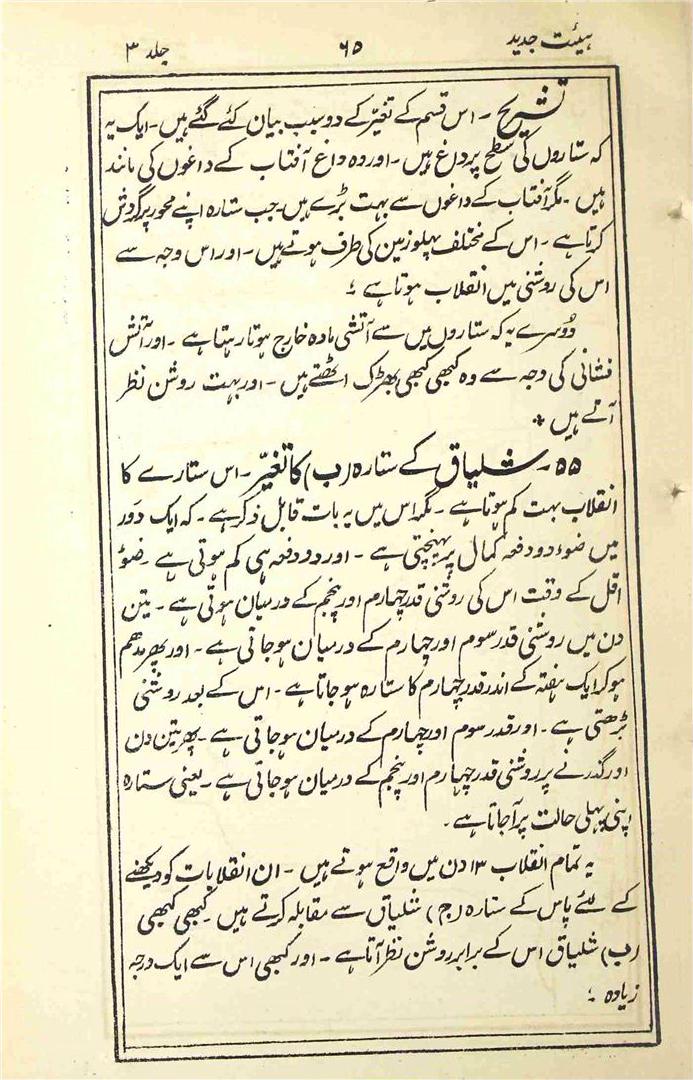 ہیئت جدید ۶۵ جلد ۳
تشریح ۔ اس قسم کے تغیّر کے دو سبب بیان کئے گئے ہیں ۔ ایک یہ
کہ ستاروں کی سطح پر داغ ہیں ۔ اور وہ داغ آفتاب کے داغوں کی مانند
ہیں ۔ مگر آفتاب کے داغوں سے بہت بڑے ہیں ۔ جب ستارہ اپنے محور پر گردش
کرتا ہے ۔ اس کے مختلف پہلو زمین کی طرف ہوتے ہیں ۔ اور اس وجہ سے
اس کی روشنی میں انقلاب ہوتا ہے ؛
دُوسرے یہ کہ ستاروں میں سے آتشی مادہ خارج ہوتا رہتا ہے ۔ اور آتش
فشانی کی وجہ سے وہ کبھی کبھی بھڑک اٹھتے ہیں ۔ اور بہت روشن نظر
آتے ہیں *
۵۵ ۔ شلیاق کے ستارہ (ب) کا تغیّر ۔ اس ستارے کا
انقلاب بہت کم ہوتا ہے ۔ مگر اس میں یہ بات قابل ذکر ہے ۔ کہ ایک دَور
میں ضوء دو دفعہ کمال پر پہنچتی ہے ۔ اور دو دفعہ ہی کم ہوتی ہے ۔ ضوءِ
اقل کے وقت اس کی روشنی قدر چہارم اور پنجم کے درمیان ہوتی ہے ۔ تین
دن میں روشنی قدر سوم اور چہارم کے درمیان ہو جاتی ہے ۔ اور پھر مدھم
ہو کر ایک ہفتہ کے اندر قدر چہارم کا ستارہ ہو جاتا ہے ۔ اس کے بعد روشنی
بڑھتی ہے ۔ اور قدر سوم اور چہارم کے درمیان ہو جاتی ہے ۔ پھر تین دن
اور گذرنے پر روشنی قدر چہارم اور پنجم کے درمیان ہو جاتی ہے ۔ یعنی ستارہ
اپنی پہلی حالت پر آ جاتا ہے ۔
یہ تمام انقلاب ۱۳ دن میں واقع ہوتے ہیں ۔ ان انقلابات کو دیکھنے
کے لئے پاس کے ستارہ (ج) شلیاق سے مقابلہ کرتے ہیں ۔ کبھی کبھی
(ب) شلیاق اس کے برابر روشن نظر آتا ہے ۔ اور کبھی اس سے ایک درجہ
زیادہ ؛